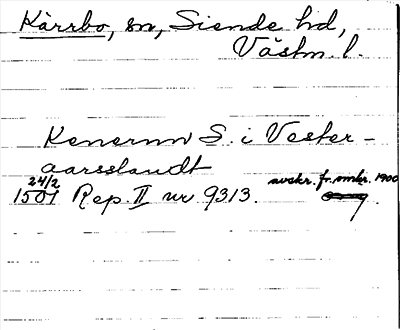 Kärrbo, sn, Siende hd,
Västm. l.
Kenernn S. i Vester-
aarsslandt
24/2
1501 Rep. II nr 9313. avskr. fr. omkr. 1900